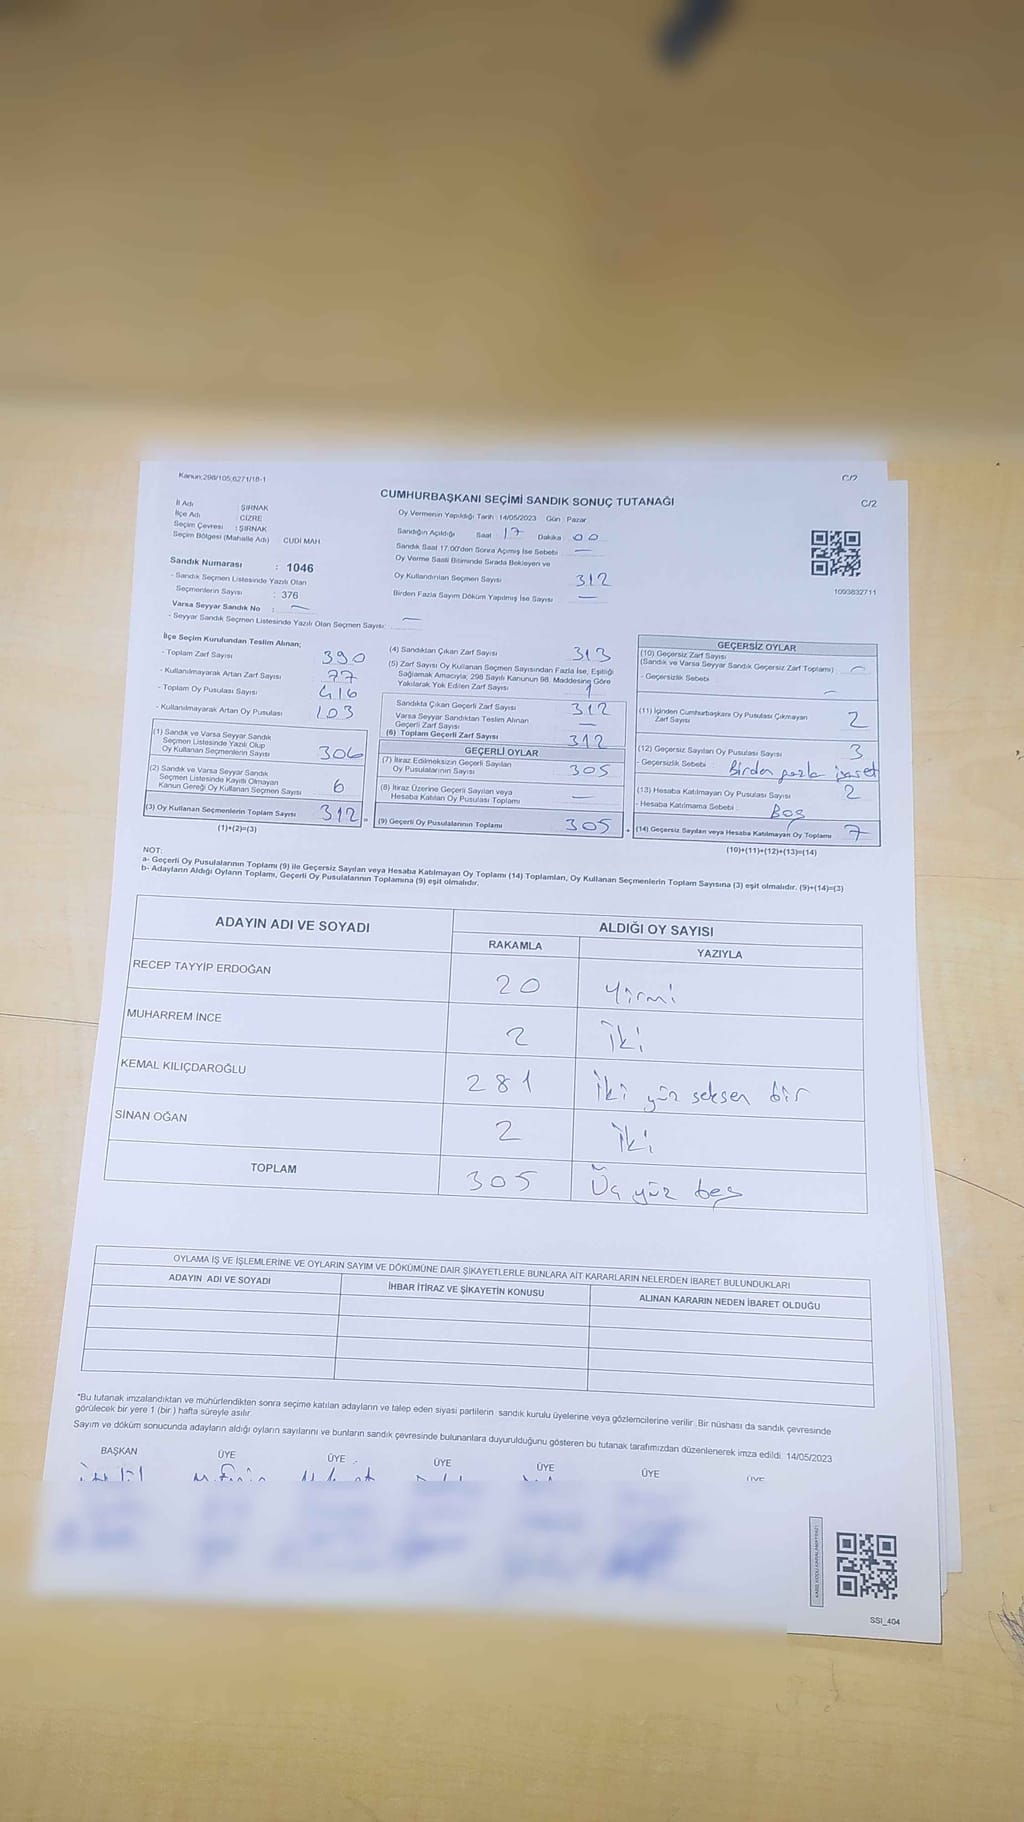 Kanun;298/105;6271/18-1
C/2
C/2
CUMHURBAŞKANI SEÇİMİ SANDIK SONUÇ TUTANAĞI
İl Adı : ŞIRNAK
İlçe Adı : CİZRE
Seçim Çevresi : ŞIRNAK
Seçim Bölgesi (Mahalle Adı) CUDİ MAH
Sandık Numarası : 1046
- Sandık Seçmen Listesinde Yazılı Olan
Seçmenlerin Sayısı : 376
Varsa Seyyar Sandık No : —
- Seyyar Sandık Seçmen Listesinde Yazılı Olan Seçmen Sayısı: —
Oy Vermenin Yapıldığı Tarih : 14/05/2023 Gün : Pazar
Sandığın Açıldığı Saat 17 Dakika 00
Sandık Saat 17:00'den Sonra Açımış İse Sebebi —
Oy Verme Saati Bitiminde Sırada Bekleyen ve
Oy Kullandırılan Seçmen Sayısı 312
Birden Fazla Sayım Döküm Yapılmış İse Sayısı —
1093832711
İlçe Seçim Kurulundan Teslim Alınan;
- Toplam Zarf Sayısı 390
- Kullanılmayarak Artan Zarf Sayısı 77
- Toplam Oy Pusulası Sayısı 416
- Kullanılmayarak Artan Oy Pusulası 103
(1) Sandık ve Varsa Seyyar Sandık
Seçmen Listesinde Yazılı Olup
Oy Kullanan Seçmenlerin Sayısı 306
(2) Sandık ve Varsa Seyyar Sandık
Seçmen Listesinde Kayıtlı Olmayan
Kanun Gereği Oy Kullanan Seçmen Sayısı 6
(3) Oy Kullanan Seçmenlerin Toplam Sayısı 312
(1)+(2)=(3)
(4) Sandıktan Çıkan Zarf Sayısı 313
(5) Zarf Sayısı Oy Kullanan Seçmen Sayısından Fazla İse, Eşitliği
Sağlamak Amacıyla; 298 Sayılı Kanunun 98. Maddesine Göre
Yakılarak Yok Edilen Zarf Sayısı 1
Sandıkta Çıkan Geçerli Zarf Sayısı 312
Varsa Seyyar Sandıktan Teslim Alınan
Geçerli Zarf Sayısı —
(6) Toplam Geçerli Zarf Sayısı 312
GEÇERLİ OYLAR
(7) İtiraz Edilmeksizin Geçerli Sayılan
Oy Pusulalarının Sayısı 305
(8) İtiraz Üzerine Geçerli Sayılan veya
Hesaba Katılan Oy Pusulası Toplamı —
(9) Geçerli Oy Pusulalarının Toplamı 305
GEÇERSİZ OYLAR
(10) Geçersiz Zarf Sayısı
(Sandık ve Varsa Seyyar Sandık Geçersiz Zarf Toplamı) —
- Geçersizlik Sebebi —
(11) İçinden Cumhurbaşkanı Oy Pusulası Çıkmayan
Zarf Sayısı 2
(12) Geçersiz Sayılan Oy Pusulası Sayısı 3
- Geçersizlik Sebebi Birden fazla işaret
(13) Hesaba Katılmayan Oy Pusulası Sayısı 2
- Hesaba Katılmama Sebebi Boş
(14) Geçersiz Sayılan veya Hesaba Katılmayan Oy Toplamı 7
(10)+(11)+(12)+(13)=(14)
NOT:
a- Geçerli Oy Pusulalarının Toplamı (9) ile Geçersiz Sayılan veya Hesaba Katılmayan Oy Toplamı (14) Toplamları, Oy Kullanan Seçmenlerin Toplam Sayısına (3) eşit olmalıdır. (9)+(14)=(3)
b- Adayların Aldığı Oyların Toplamı, Geçerli Oy Pusulalarının Toplamına (9) eşit olmalıdır.
ADAYIN ADI VE SOYADI ALDIĞI OY SAYISI
RAKAMLA YAZIYLA
RECEP TAYYİP ERDOĞAN 20 Yirmi
MUHARREM İNCE 2 İki
KEMAL KILIÇDAROĞLU 281 İki yüz seksen bir
SİNAN OĞAN 2 İki
TOPLAM 305 Üç yüz beş
OYLAMA İŞ VE İŞLEMLERİNE VE OYLARIN SAYIM VE DÖKÜMÜNE DAİR ŞİKAYETLERLE BUNLARA AİT KARARLARIN NELERDEN İBARET BULUNDUKLARI
ADAYIN ADI VE SOYADI İHBAR İTİRAZ VE ŞİKAYETİN KONUSU ALINAN KARARIN NEDEN İBARET OLDUĞU
*Bu tutanak imzalandıktan ve mühürlendikten sonra seçime katılan adayların ve talep eden siyasi partilerin sandık kurulu üyelerine veya gözlemcilerine verilir. Bir nüshası da sandık çevresinde
görülecek bir yere 1 (bir ) hafta süreyle asılır.
Sayım ve döküm sonucunda adayların aldığı oyların sayılarını ve bunların sandık çevresinde bulunanlara duyurulduğunu gösteren bu tutanak tarafımızdan düzenlenerek imza edildi. 14/05/2023
BAŞKAN ÜYE ÜYE ÜYE ÜYE ÜYE ÜYE
SSI_404